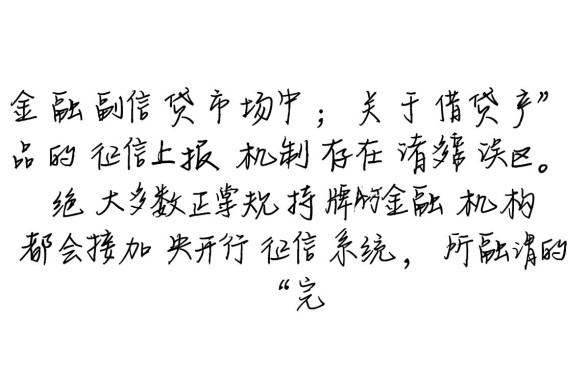 金融副信贷市场中；关于借贷产”
品的征信上报机制存在诸多误区。
绝大多数正掌规持牌的金融机构
都会接加央开行征信系统，所融谓的
“完